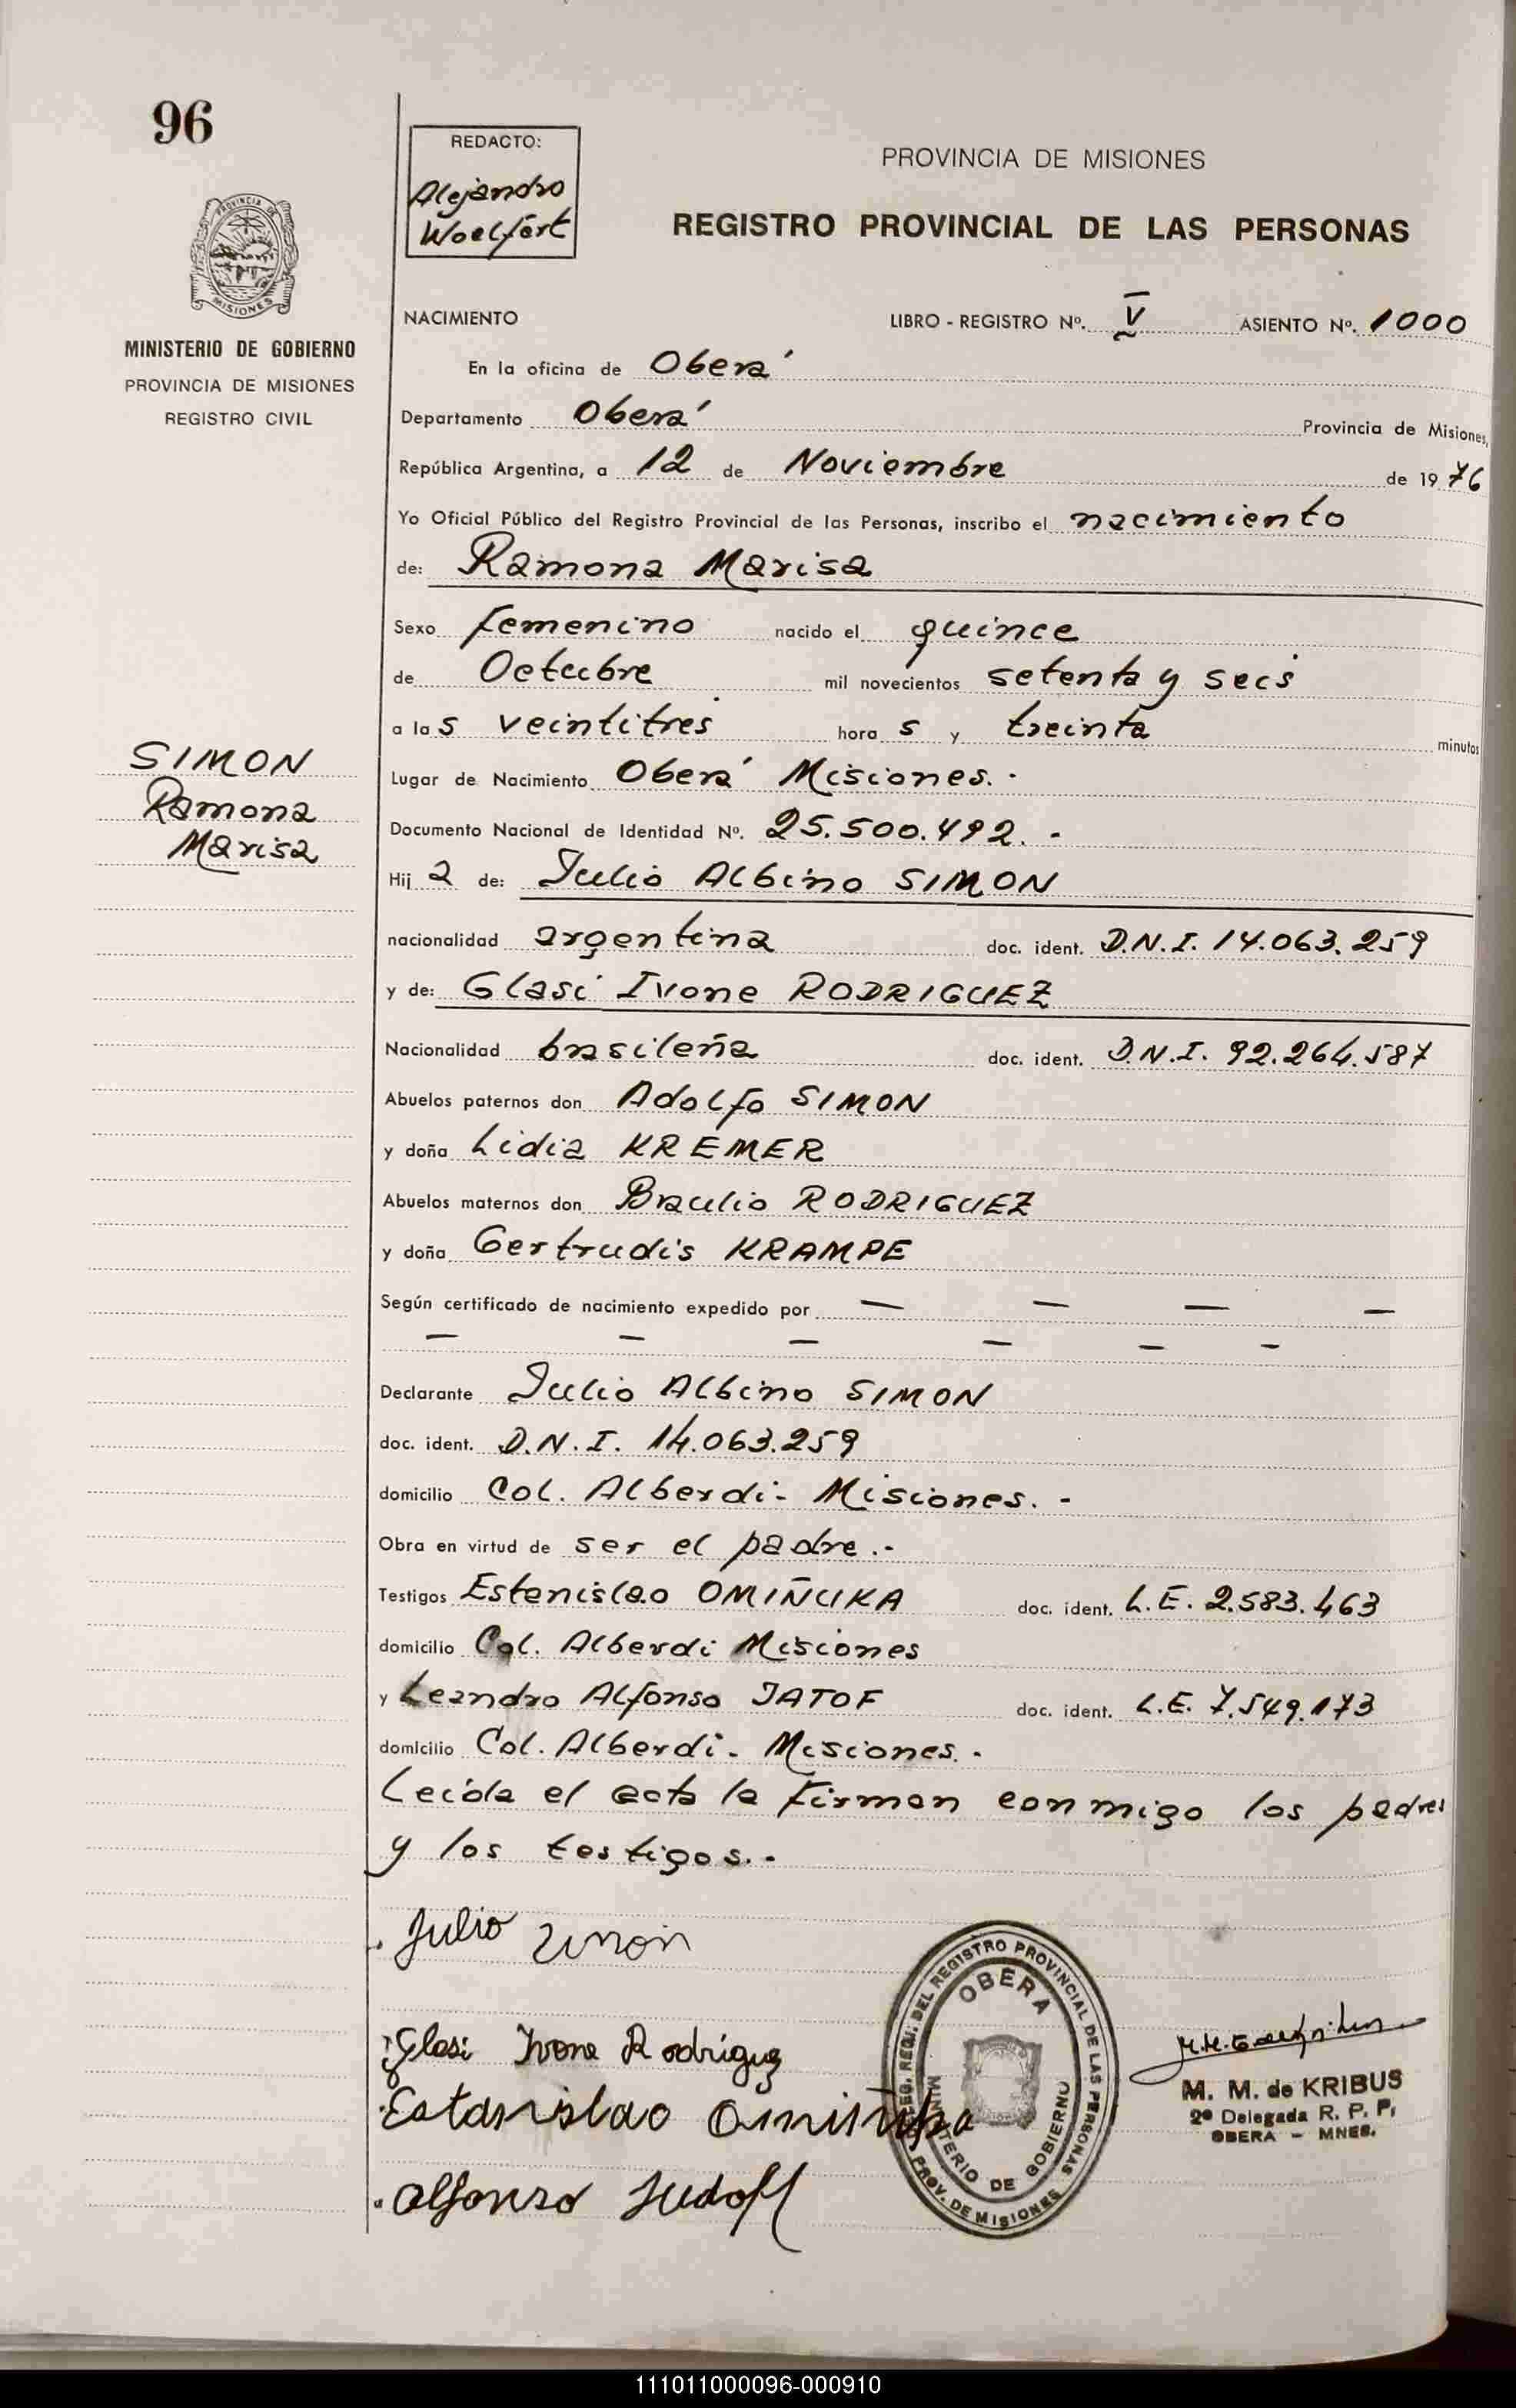 96
REDACTO:
Alejandro
Woelfert
PROVINCIA DE MISIONES
REGISTRO PROVINCIAL DE LAS PERSONAS
PROVINCIA DE
MISIONES
MINISTERIO DE GOBIERNO
PROVINCIA DE MISIONES
REGISTRO CIVIL
NACIMIENTO LIBRO - REGISTRO Nº. V ASIENTO Nº. 1000
En la oficina de Oberá
Departamento Oberá Provincia de Misiones,
República Argentina, a 12 de Noviembre de 1976
Yo Oficial Público del Registro Provincial de las Personas, inscribo el nacimiento
de: Ramona Marisa
Sexo femenino nacido el quince
de Octubre mil novecientos setenta y seis
a las veintitres horas y treinta minutos
SIMON
Ramona
Marisa
Lugar de Nacimiento Oberá Misiones.-
Documento Nacional de Identidad Nº. 25.500.492.-
Hija de: Julio Albino SIMON
nacionalidad argentina doc. ident. D.N.I. 14.063.259
y de: Glasi Ivone RODRIGUEZ
Nacionalidad brasileña doc. ident. D.N.I. 92.264.587
Abuelos paternos don Adolfo SIMON
y doña Lidia KREMER
Abuelos maternos don Braulio RODRIGUEZ
y doña Gertrudis KRAMPE
Según certificado de nacimiento expedido por — — — —
— — — — — —
Declarante Julio Albino SIMON
doc. ident. D.N.I. 14.063.259
domicilio Col. Alberdi- Misiones.-
Obra en virtud de ser el padre.-
Testigos Estenislao OMIÑUKA doc. ident. L.E. 2.583.463
domicilio Col. Alberdi Misiones
y Leandro Alfonso JATOF doc. ident. L.E. 7.549.173
domicilio Col. Alberdi- Misiones.-
Leida el acta la firman conmigo los padres
y los testigos.-
Julio Simon
Glasi Ivone Rodriguez
Estanislao Omiñuka
Alfonso
REGISTRO PROVINCIAL DE LAS PERSONAS
OBERA
MINISTERIO DE GOBIERNO
PROV. DE MISIONES
M. M. de KRIBUS
2ª Delegada R. P. P.
OBERA - MNES.
111011000096-000910